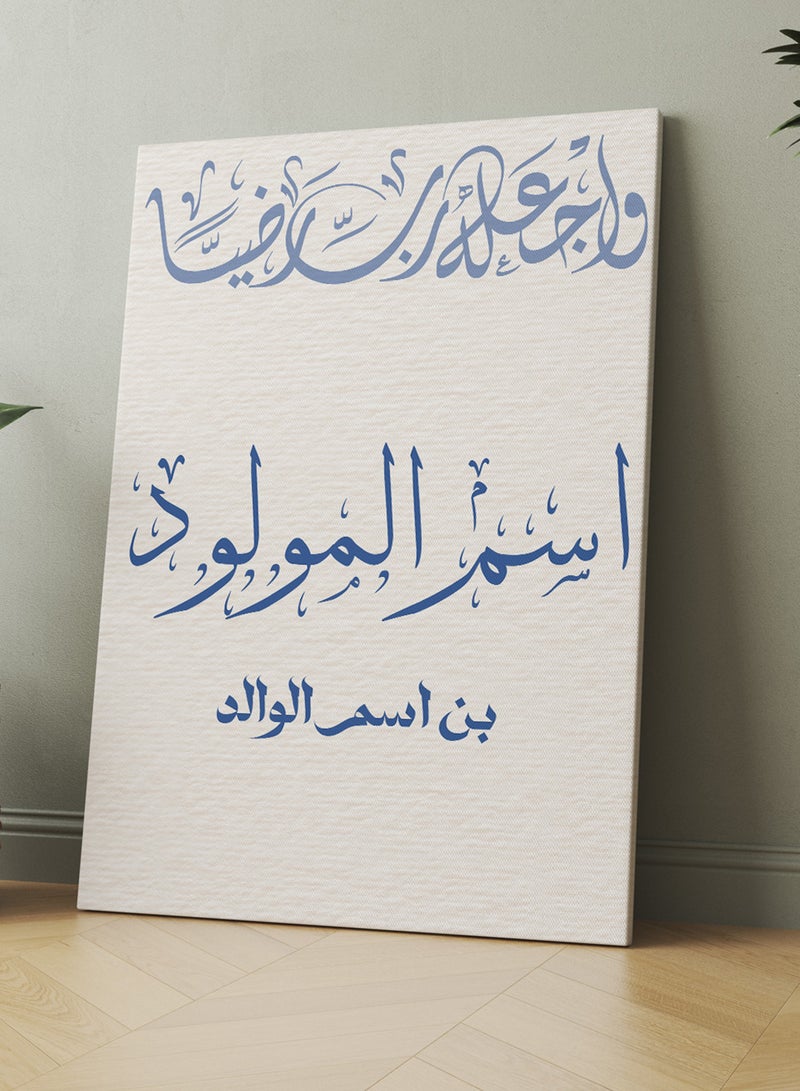 واجعله رب رضيا
اسم المولود
بن اسم الوالد